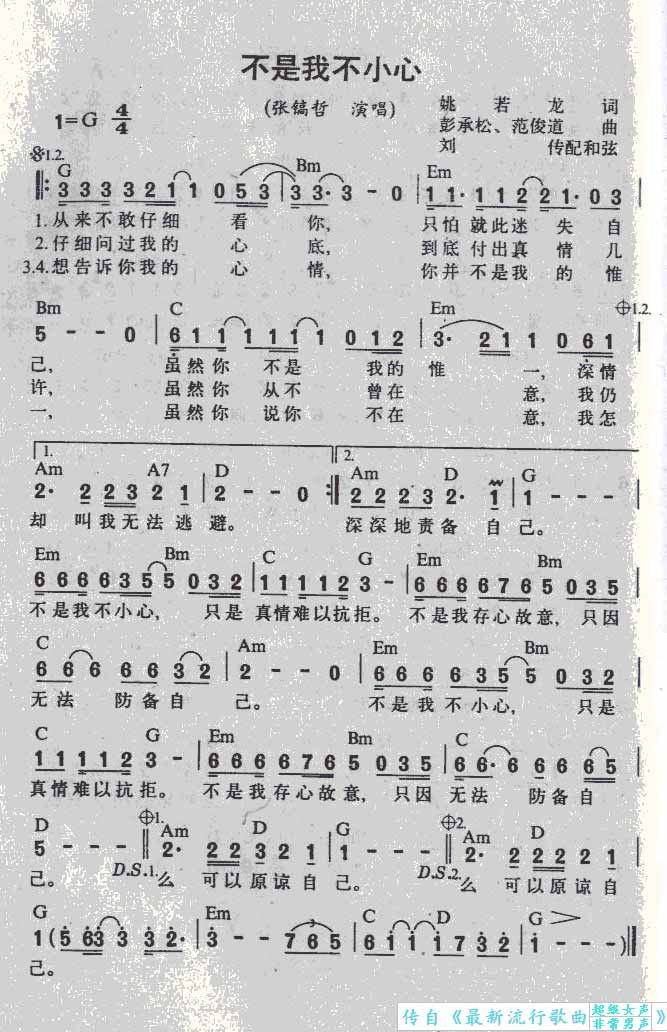 不是我不小心
1=G 4/4
(张镐哲 演唱)
姚若龙 词
彭承松、范俊道 曲
刘 传配和弦
1.2.
G Bm Em
3 3 3 3 2 1 1 0 5 3 | 3 3· 3 - 0 | 1 1· 1 1 2 2 1· 0 3 |
1.从来不敢仔细 看 你, 只怕就此迷失自
2.仔细问过我的 心 底, 到底付出真情几
3.4.想告诉你我的 心 情, 你并不是我的惟
Bm C Em 1.2.
5 - - 0 | 6 1 1 1 1 1 1 1 0 1 2 | 3· 2 1 1 0 6 1 |
己, 虽然你 不是 我的 惟 一, 深情
许, 虽然你 从不 曾在 意, 我仍
一, 虽然你 说你 不在 意, 我怎
1. 2.
Am A7 D Am D G
2· 2 2 3 2 1 | 2 - - 0 :‖ 2 2 2 3 2· 1 | 1 - - - |
却 叫我无法逃避。 深深地责备 自己。
Em Bm C G Em Bm
6 6 6 6 3 5 5 0 3 2 | 1 1 1 1 2 3 - | 6 6 6 6 7 6 5 0 3 5 |
不是我不小心, 只是 真情难以抗拒。 不是我存心故意, 只因
C Am Em Bm
6 6 6 6 6 3 2 | 2 - - 0 | 6 6 6 6 3 5 5 0 3 2 |
无法 防备自 己。 不是我不小心, 只是
C G Em Bm C
1 1 1 1 2 3 - | 6 6 6 6 7 6 5 0 3 5 | 6 6· 6 6 6 6 5 |
真情难以抗拒。 不是我存心故意, 只因 无法 防备自
D 1. Am D G 2. Am D
5 - - - ‖ 2· 2 2 3 2 1 | 1 - - - ‖ 2· 2 2 2 2 1 |
己。 D.S.1. 么 可以原谅自己。 D.S.2. 么 可以原谅自
G Em C D G
1 (5 6 3 3 3 3 2· | 3 - - 7 6 5 | 6 1 1 1 7 3 2 | 1 - - - )‖
己。
传自《最新流行歌曲
超级女声
非常男声